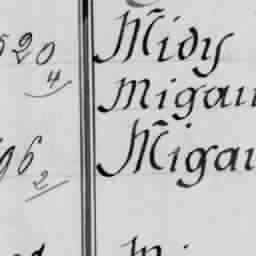 520 Midy
4 Migau
96 Migau
2